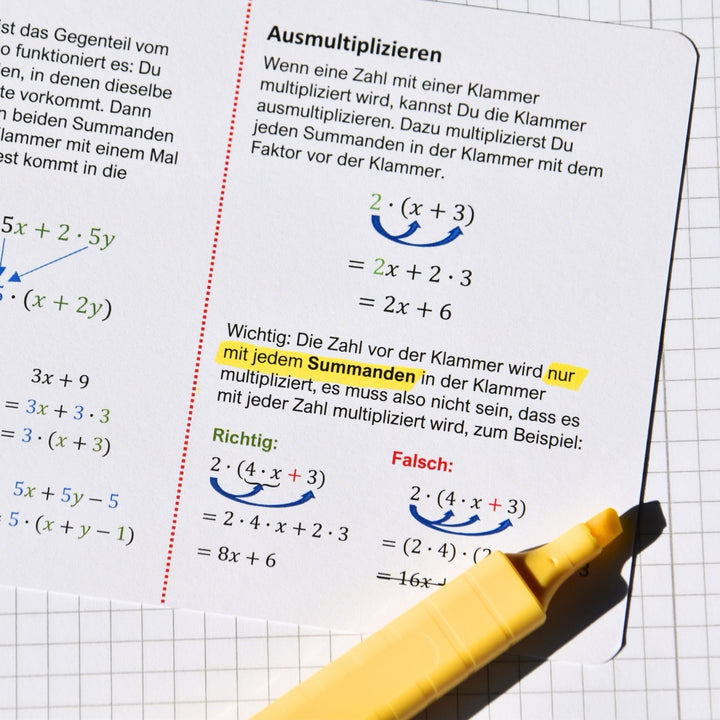 ist das Gegenteil vom
o funktioniert es: Du
en, in denen dieselbe
te vorkommt. Dann
n beiden Summanden
lammer mit einem Mal
est kommt in die
5x + 2 · 5y
5 · (x + 2y)
3x + 9
= 3x + 3 · 3
= 3 · (x + 3)
5x + 5y − 5
5 · (x + y − 1)
Ausmultiplizieren
Wenn eine Zahl mit einer Klammer
multipliziert wird, kannst Du die Klammer
ausmultiplizieren. Dazu multiplizierst Du
jeden Summanden in der Klammer mit dem
Faktor vor der Klammer.
2 · (x + 3)
= 2x + 2 · 3
= 2x + 6
Wichtig: Die Zahl vor der Klammer wird nur
mit jedem Summanden in der Klammer
multipliziert, es muss also nicht sein, dass es
mit jeder Zahl multipliziert wird, zum Beispiel:
Richtig:
2 · (4 · x + 3)
= 2 · 4 · x + 2 · 3
= 8x + 6
Falsch:
2 · (4 · x + 3)
= (2 · 4) · (2
= 16x
3